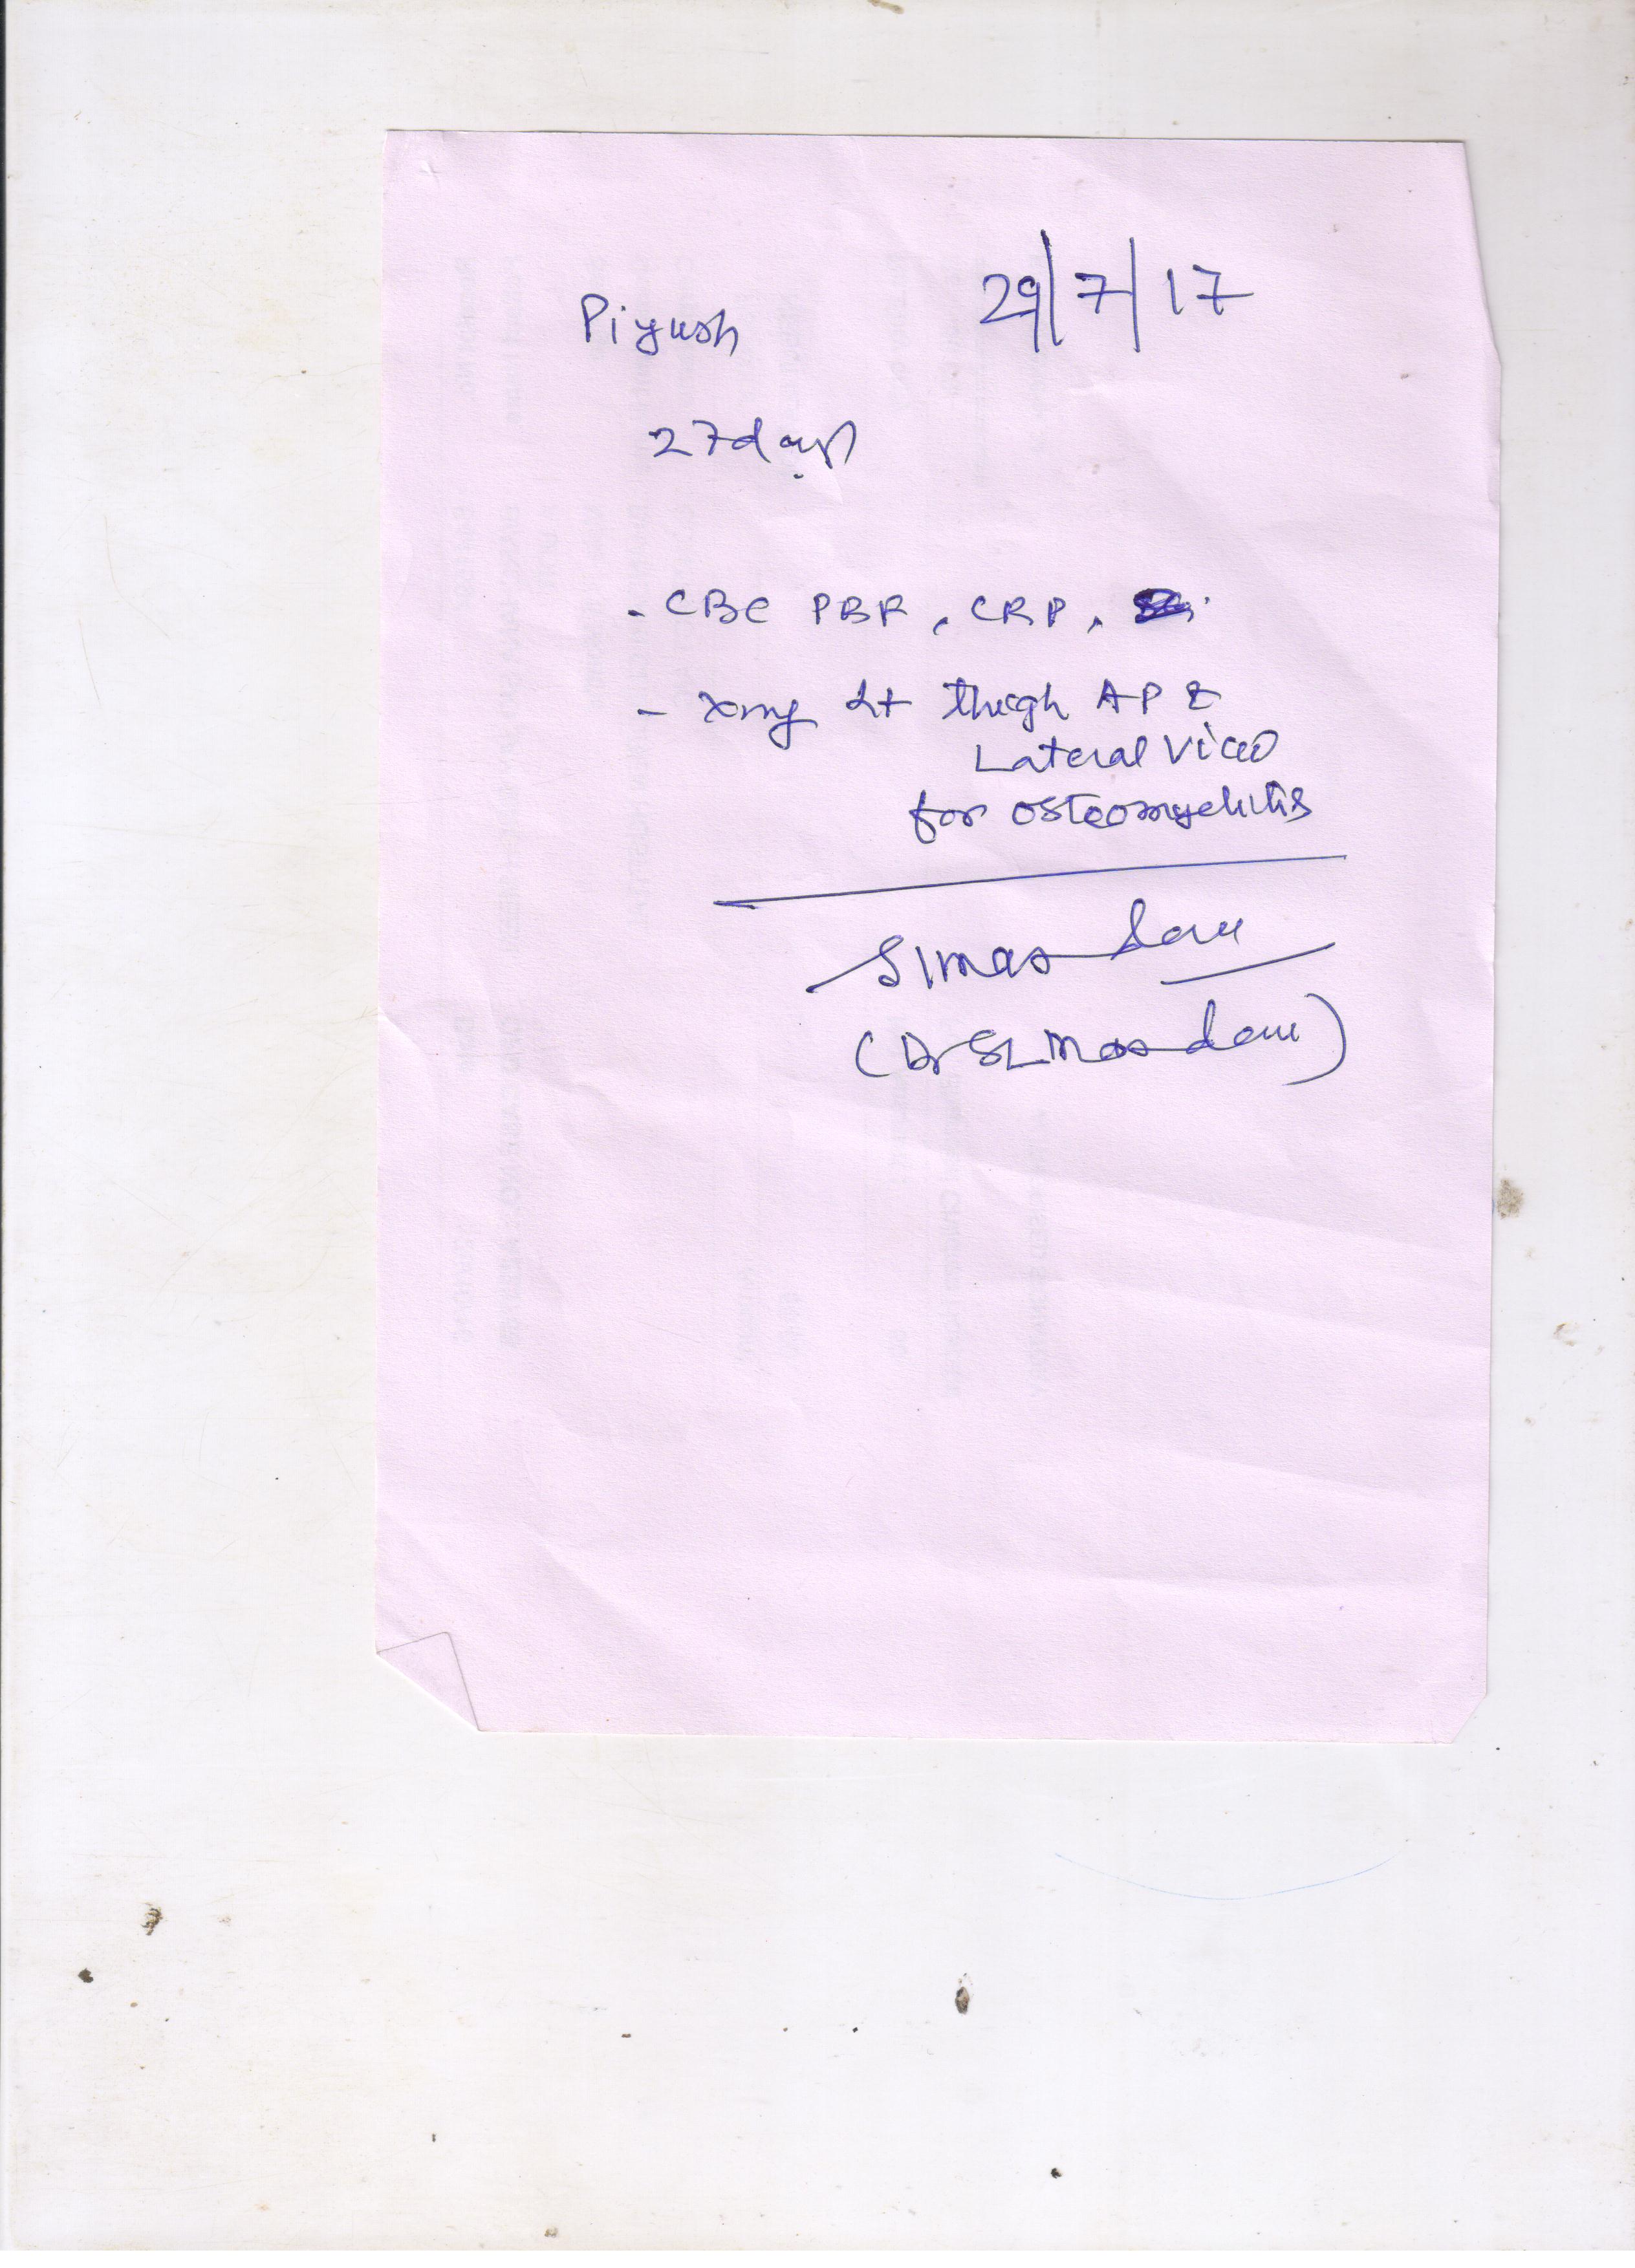 Piyush 29/7/17
27 days
- CBC PBF, CRP,
- Xray Lt thigh AP &
Lateral View
for osteomyelitis
(Dr SL